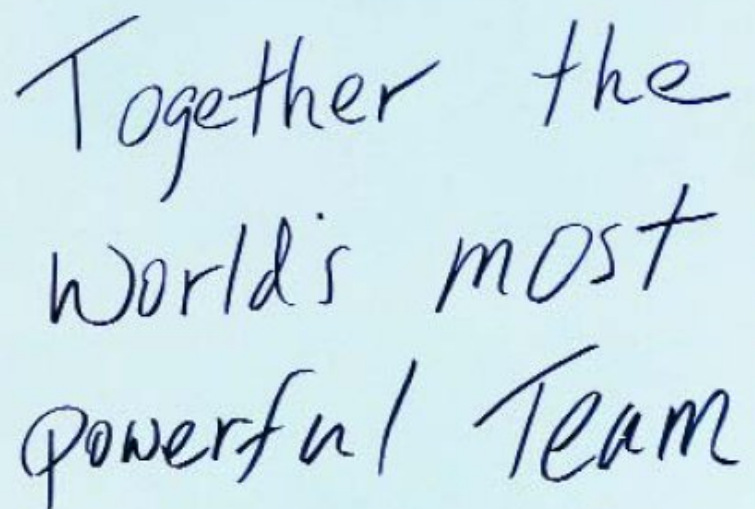 Together the
world's most
powerful Team